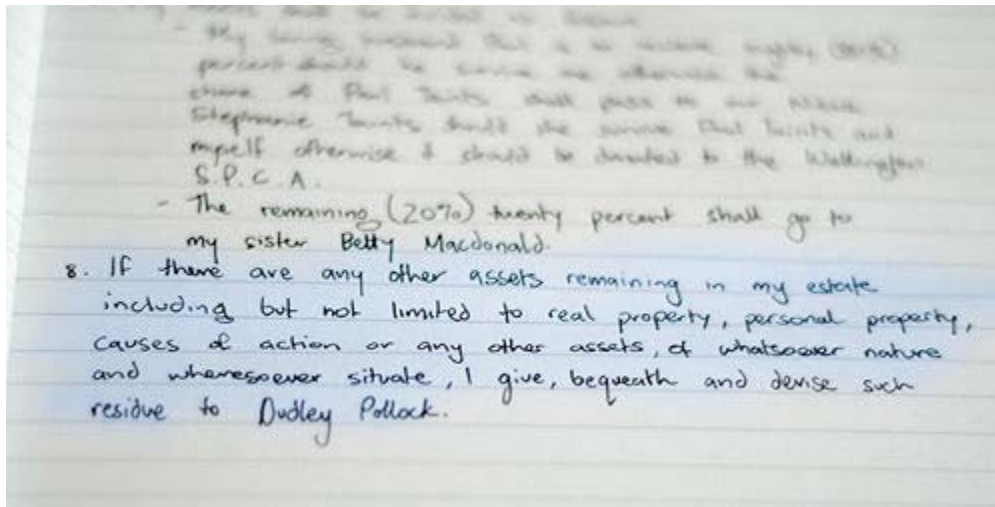 - My loving husband Paul is to receive eighty (80%)
percent should he survive me otherwise the
share of Paul Taints shall pass to our
Stephanie Taints should she survive Paul Taints and
myself otherwise it should be donated to the Wellington
S.P.C.A.
- The remaining (20%) twenty percent shall go to
my sister Betty Macdonald.
8. If there are any other assets remaining in my estate
including but not limited to real property, personal property,
causes of action or any other assets, of whatsoever nature
and wheresoever situate, I give, bequeath and devise such
residue to Dudley Pollock.